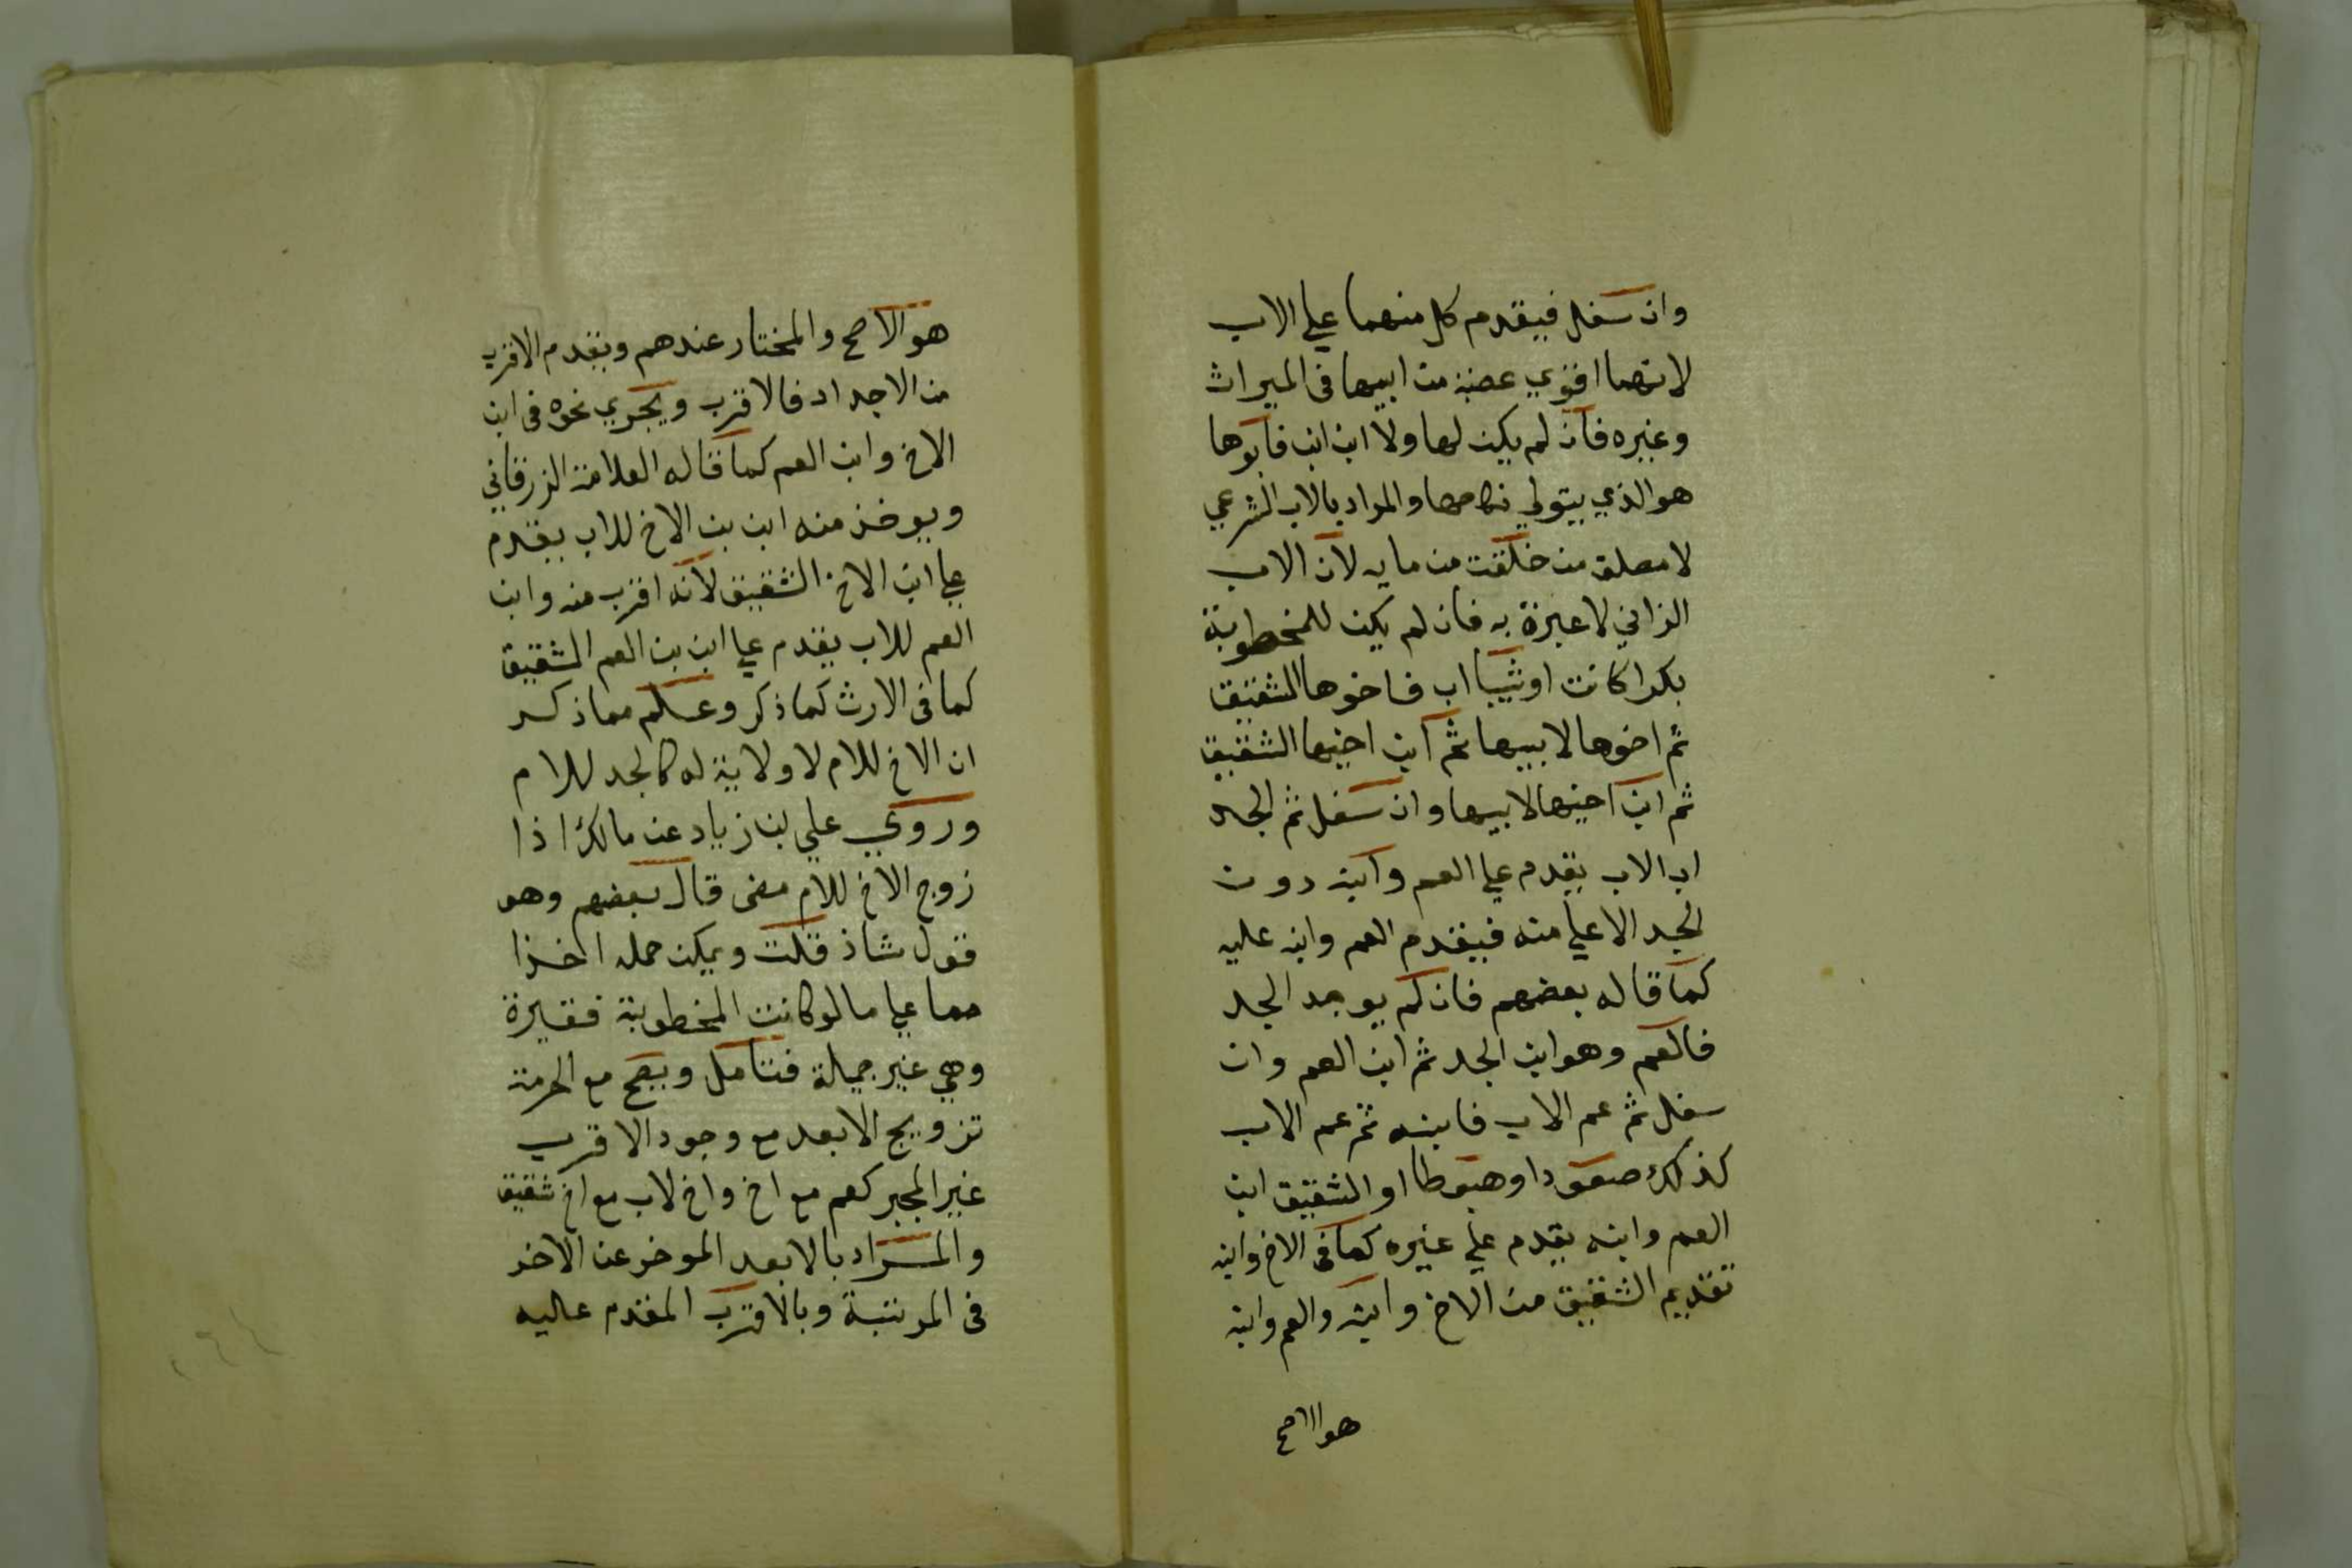 وان سفل فيقدم كل منهما علي الاب
لانهما اقوي عصبة من ابيها فى الميراث
وغيره فان لم يكن لها ولا ابن ابن فابوها
هو الذي يتولي نكاحها والمراد بالاب الشرعي
لا مطلق من خلقت من مايه لان الاب
الزاني لا عبرة به فان لم يكن للمخطوبة
بكرا كانت او ثيبا اب فاخوها الشقيق
ثم اخوها لابيها ثم ابن اخيها الشقيق
ثم ابن اخيها لابيها وان سفل ثم الجد
اب الاب يقدم علي العم وابنه دون
الجد الاعلي منه فيقدم العم وابنه عليه
كما قاله بعضهم فان لم يوجد الجد
فالعم وهو ابن الجد ثم ابن العم وان
سفل ثم عم الاب فابنه ثم عم الاب
كذلك صعودا وهبوطا او الشقيق ابن
العم وابنه يقدم علي غيره كما فى الاخ وابنه
تقديم الشقيق من الاخ وابنه والعم وابنه
هو الاصح
هو الاصح والمختار عندهم ويقدم الاقرب
من الاجداد فالاقرب ويجري نحوه فى ابن
الاخ وابن العم كما قاله العلامة الزرقاني
ويوخذ منه ابن بن الاخ للاب يقدم
علي ابن الاخ الشقيق لانه اقرب منه وابن
العم للاب يقدم علي ابن بن العم الشقيق
كما فى الارث كما ذكر وعلم مما ذكر
ان الاخ للام لا ولاية له كالجد للام
وروي علي بن زياد عن مالك اذا
زوج الاخ للام مضى قال بعضهم وهو
قول شاذ قلت ويمكن حمله اخذا
مما علي ما لو كانت المخطوبة فقيرة
وهي غير جميلة فتامل ويصح مع الحرمة
تزويج الابعد مع وجود الاقرب
غير المجبر كعم مع اخ واخ لاب مع اخ شقيق
والمراد بالابعد الموخر عن الاخر
فى المرتبة وبالاقرب المقدم عاليه